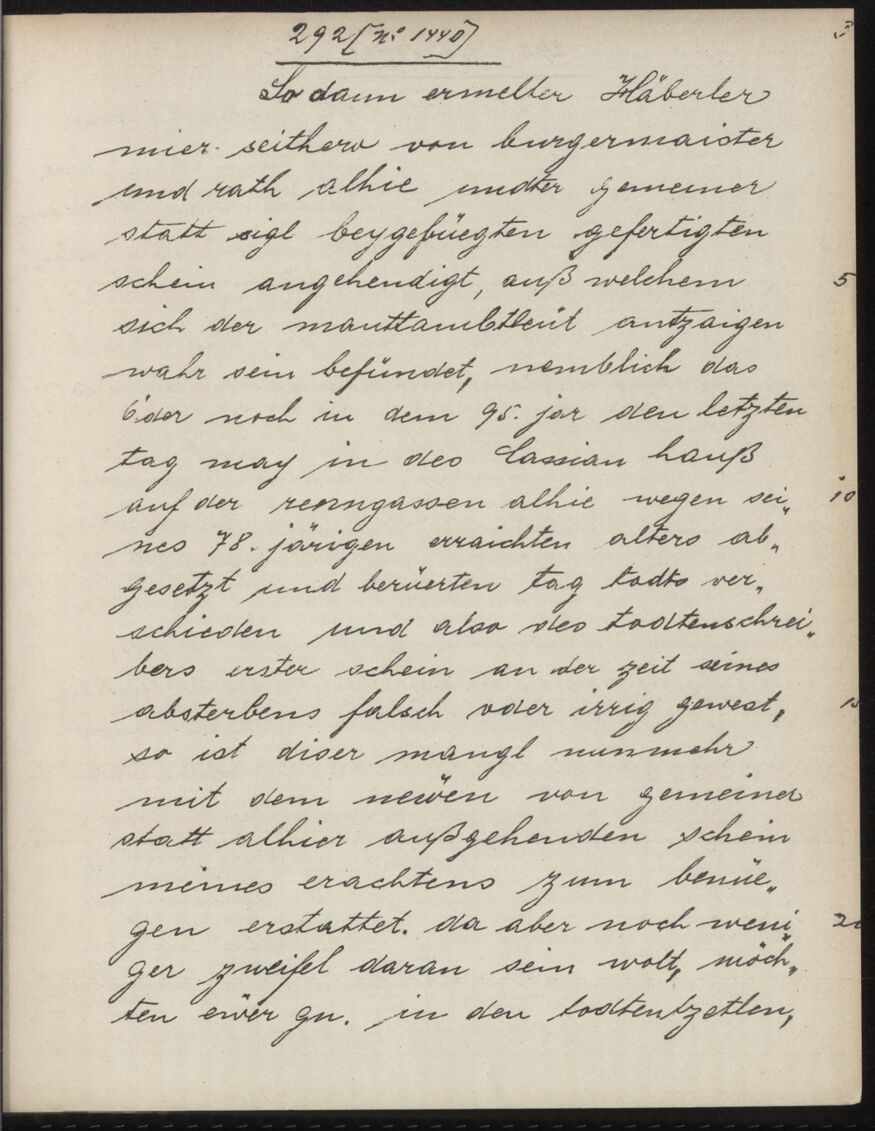 292 [nº 1440]
3
So dann ermelter Häberler
mier seithero von burgermaister
und rath alhie undter gemeiner
statt sigl beygefüegten gefertigten
schein angehendigt, auß welchem 5
sich der mauttambtleüt antzaigen
wahr sein befündet, nemblich das
der noch in dem 95. jar den letzten
tag may in des Cassian hauß
auf der renngassen alhie wegen sei„ 10
nes 78. järigen erraichten alters ab„
gesetzt und berüerten tag todts ver„
schieden und also des todtenschrei„
bers erster schein an der zeit seines
absterbens falsch oder irrig gewest, 15
so ist diser mangl nunmehr
mit dem newen von gemeiner
statt alhier außgehenden schein
meines erachtens zum benüe„
gen erstattet. da aber noch weni„ 20
ger zweifel daran sein wolt, möch„
ten ewer gn. in den todtentzetlen,